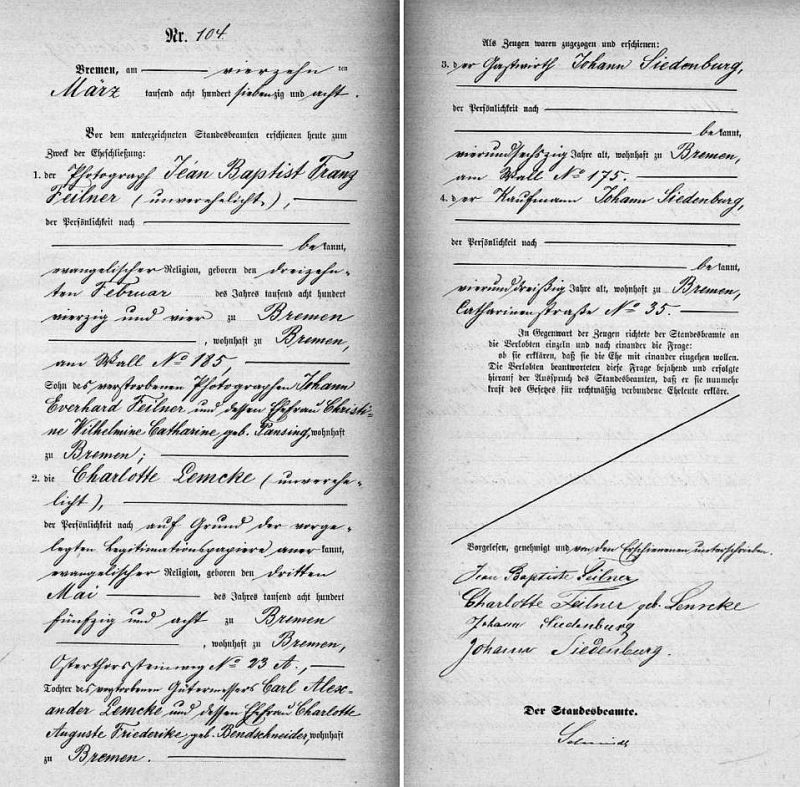 Nr. 104.
Bremen, am vierzehn ten
März tausend acht hundert siebenzig und acht.
Vor dem unterzeichneten Standesbeamten erschienen heute zum
Zweck der Eheschließung:
1. der Photograph Jean Baptist Franz
Feilner (unverehelicht),
der Persönlichkeit nach
bekannt,
evangelischer Religion, geboren den dreizehn-
ten Februar des Jahres tausend acht hundert
vierzig und vier zu Bremen
, wohnhaft zu Bremen,
am Wall No 185,
Sohn des verstorbenen Photographen Johann
Everhard Feilner und dessen Ehefrau Christi-
ne Wilhelmine Catharine geb. Pansing, wohnhaft
zu Bremen;
2. die Charlotte Lemcke (unverehe-
licht),
der Persönlichkeit nach auf Grund der vorge-
legten Legitimationspapiere anerkannt,
evangelischer Religion, geboren den dritten
Mai des Jahres tausend acht hundert
fünfzig und acht zu Bremen
, wohnhaft zu Bremen,
Osterthorssteinweg No 23 A.,
Tochter des verstorbenen Gütermessers Carl Alex-
ander Lemcke und dessen Ehefrau Charlotte
Auguste Friederike geb. Bendschneider, wohnhaft
zu Bremen.
Als Zeugen waren zugezogen und erschienen:
3. der Gastwirth Johann Siedenburg,
der Persönlichkeit nach
bekannt,
vierundsechszig Jahre alt, wohnhaft zu Bremen,
am Wall No 175.
4. der Kaufmann Johann Siedenburg,
der Persönlichkeit nach
bekannt,
vierunddreißig Jahre alt, wohnhaft zu Bremen,
Catharinenstraße No 35.
In Gegenwart der Zeugen richtete der Standesbeamte an
die Verlobten einzeln und nach einander die Frage:
ob sie erklären, daß sie die Ehe mit einander eingehen wollen.
Die Verlobten beantworteten diese Frage bejahend und erfolgte
hierauf der Ausspruch des Standesbeamten, daß er sie nunmehr
kraft des Gesetzes für rechtmäßig verbundene Eheleute erkläre.
Vorgelesen, genehmigt und von den Erschienenen unterschrieben.
Jean Baptiste Feilner
Charlotte Feilner geb. Lemcke
Johann Siedenburg
Johann Siedenburg.
Der Standesbeamte.
Schmidt